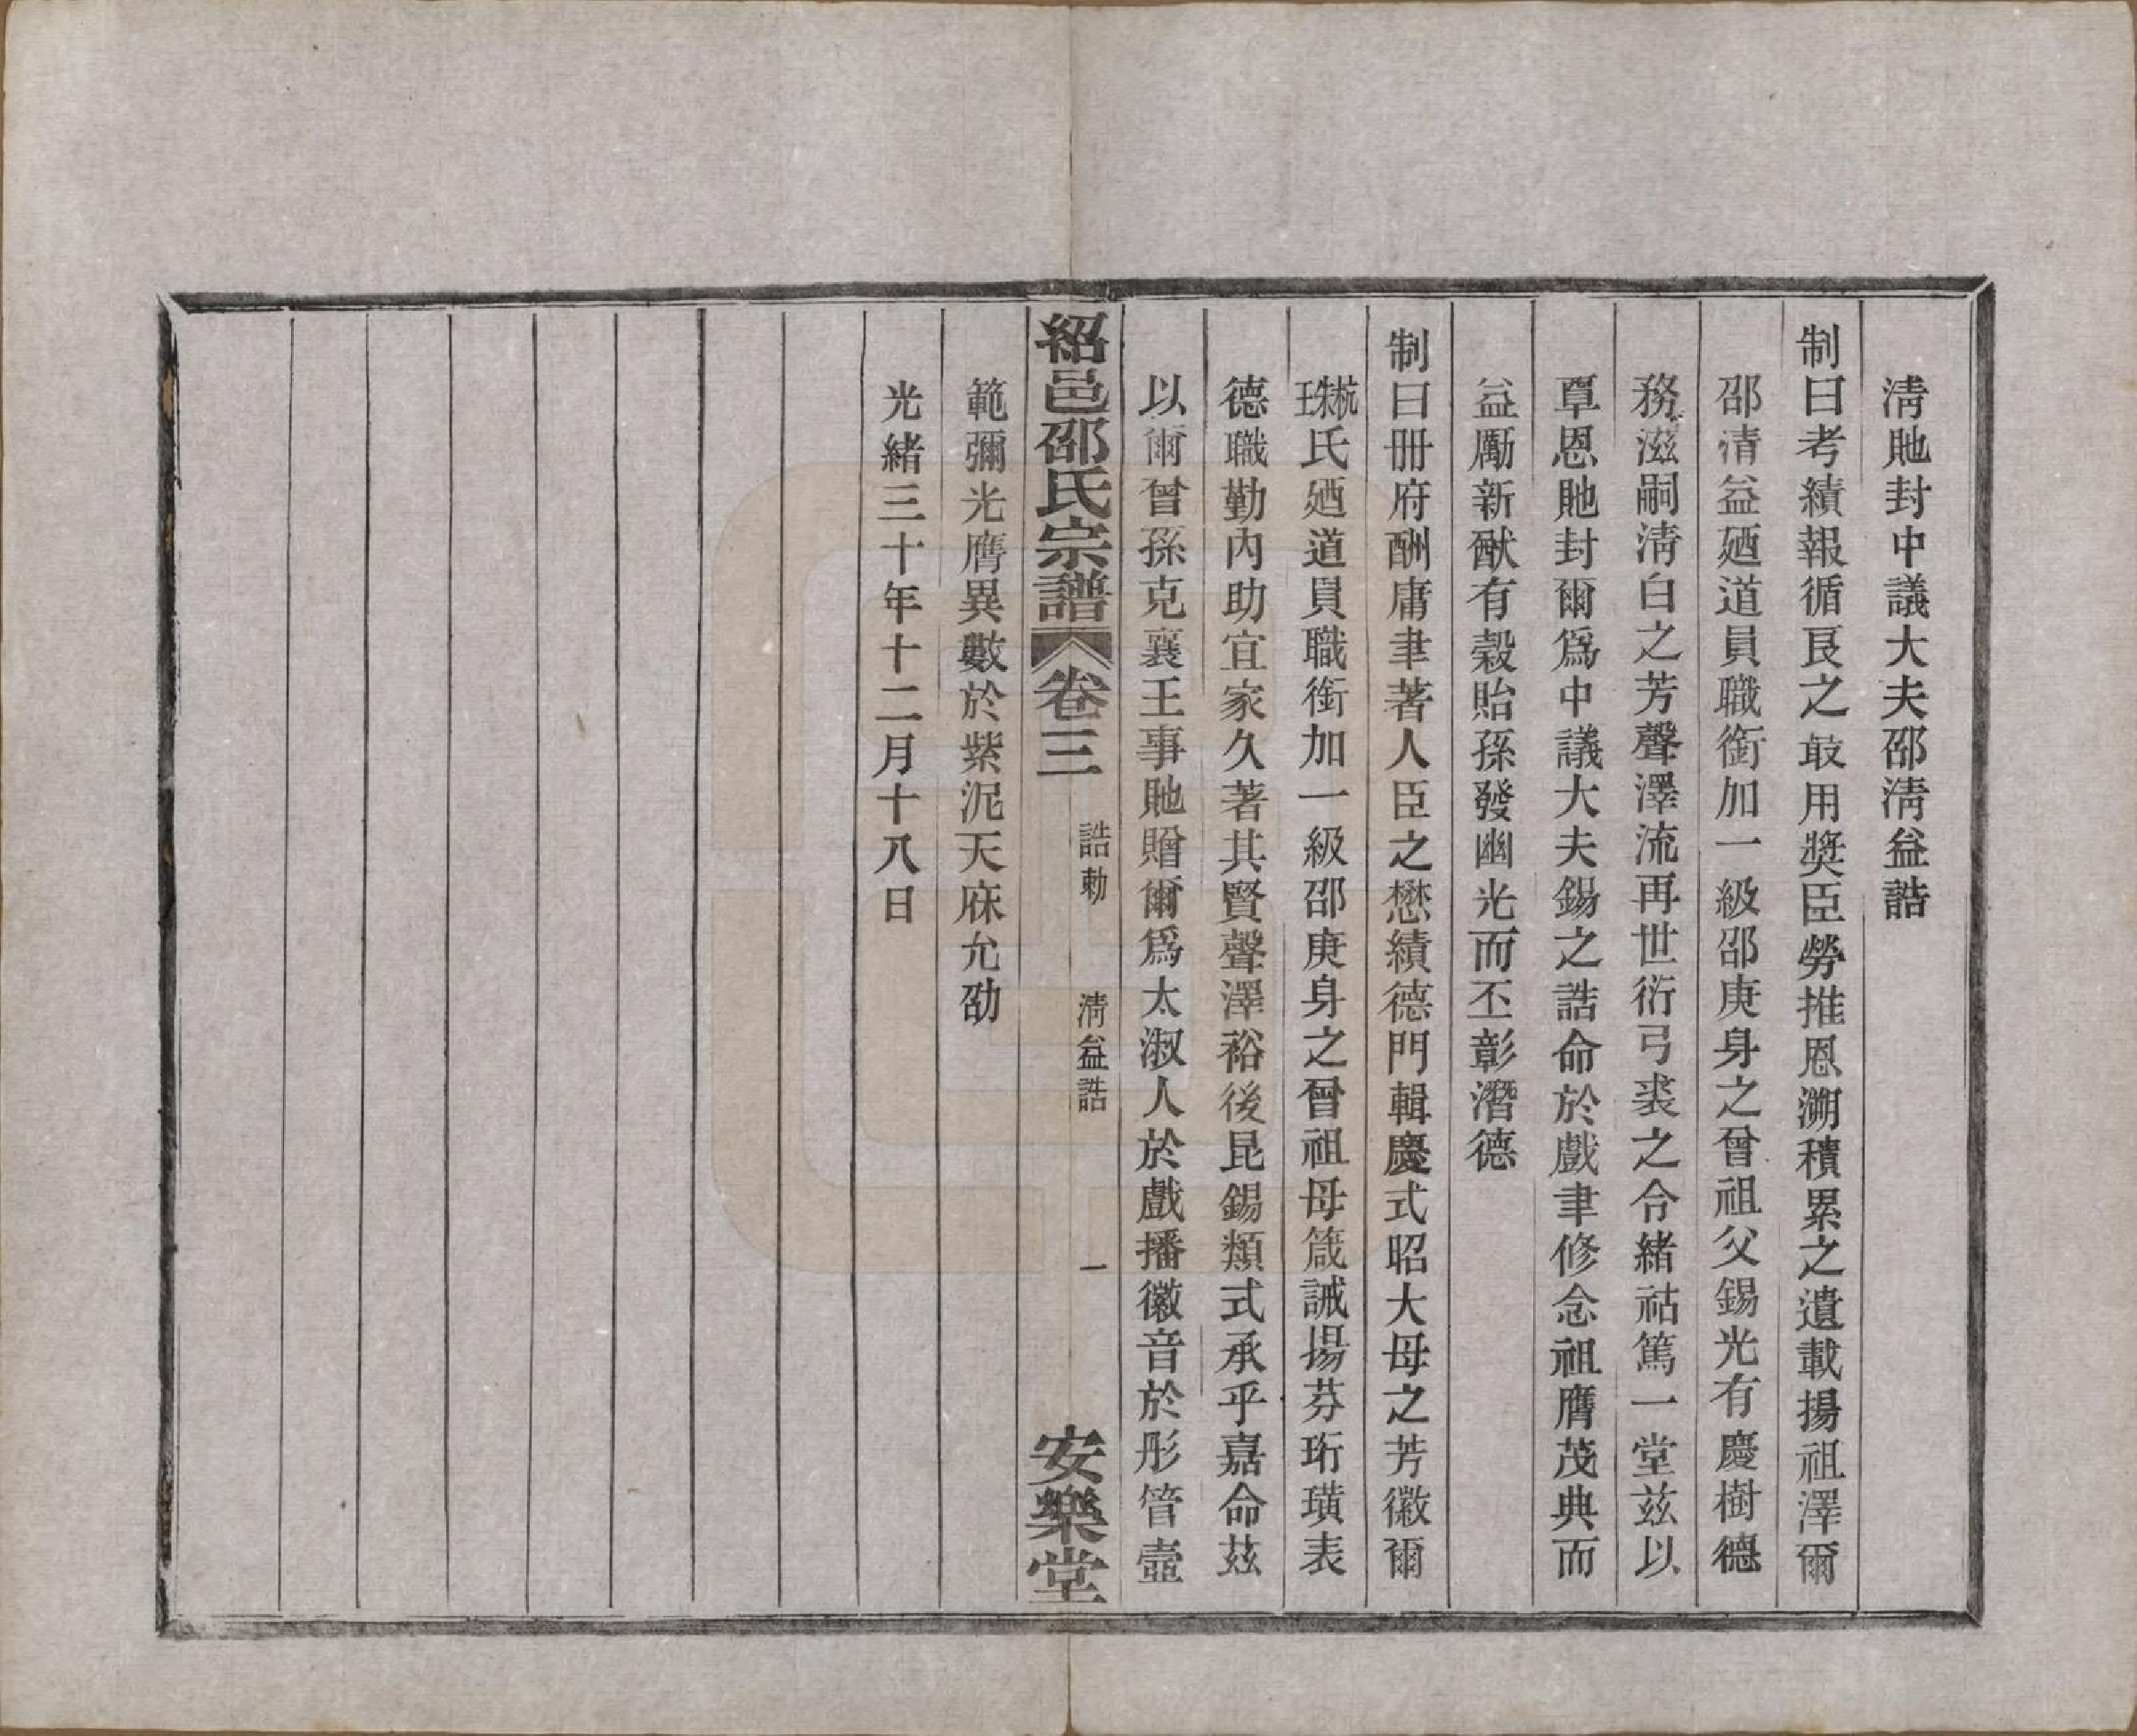 淸貤封中議大夫邵淸益誥
制曰考績報循良之最用獎臣勞推恩溯積累之遺載揚祖澤爾
邵清益廼道員職銜加一級邵庚身之曾祖父錫光有慶樹德
務滋嗣淸白之芳聲澤流再世衍弓裘之令緒祜篤一堂兹以
覃恩貤封爾爲中議大夫錫之誥命於戲聿修念祖膺茂典而
益勵新猷有穀貽孫發幽光而丕彰潛德
制曰冊府酬庸聿著人臣之懋績德門輯慶式昭大母之芳徽爾
氏廼道員職銜加一級邵庚身之曾祖母箴誡揚芬珩璜表
德職勤內助宜家久著其賢聲澤裕後昆錫類式承乎嘉命茲
以爾曾孫克襄王事貤贈爾爲太淑人於戲播徽音於彤管壼
紹邑邵氏宗譜 卷三 誥勅 淸益誥 一 安樂堂
範彌光膺異數於紫泥天庥允劭
光緒三十年十二月十八日